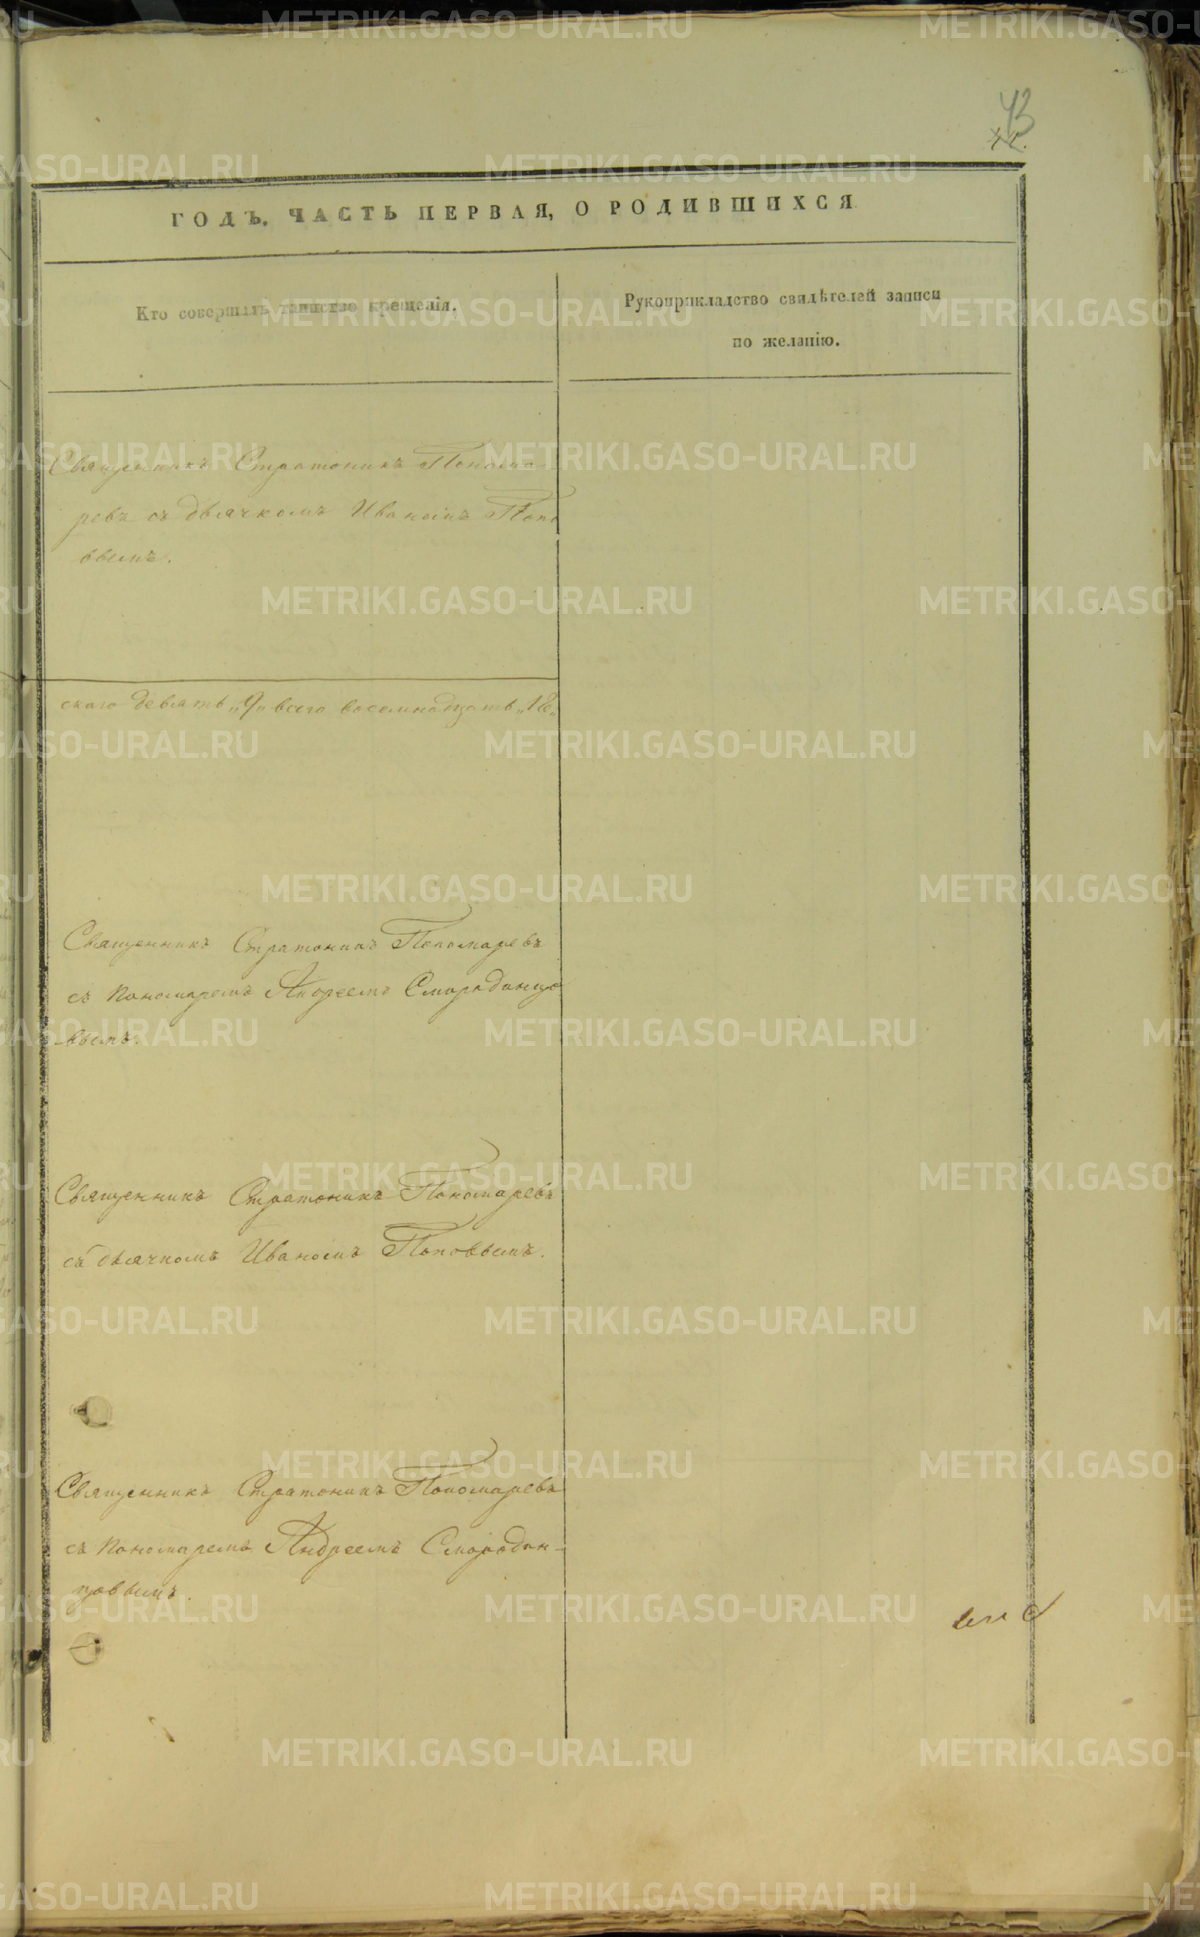 43
ГОДЪ. ЧАСТЬ ПЕРВАЯ, О РОДИВШИХСЯ
Кто совершалъ таинство крещенія.
Рукоприкладство свидѣтелей записи
по желанію.
Священникъ Стратоникъ Понома-
ревъ съ дьячкомъ Иваномъ Попо
вымъ.
скаго девять „9„ всего восемнадцать „18„
Священникъ Стратоникъ Пономаревъ
съ пономаремъ Андреемъ Смородинцо
вымъ.
Священникъ Стратоникъ Пономаревъ
съ дьячкомъ Иваномъ Поповымъ.
Священникъ Стратоникъ Пономаревъ
съ пономаремъ Андреемъ Смородин-
цовымъ.
METRIKI.GASO-URAL.RU